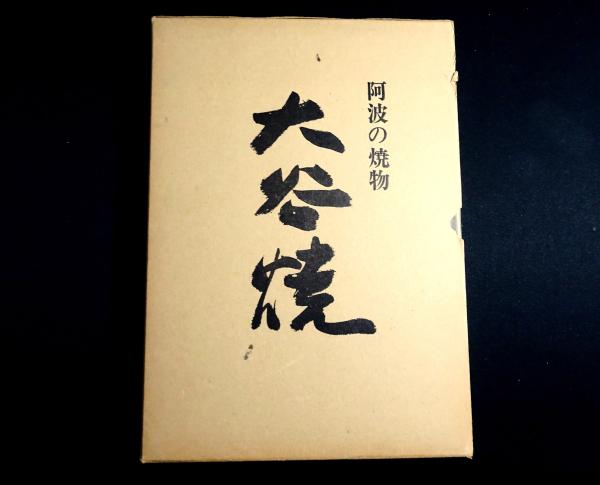 阿波の焼物
大谷焼